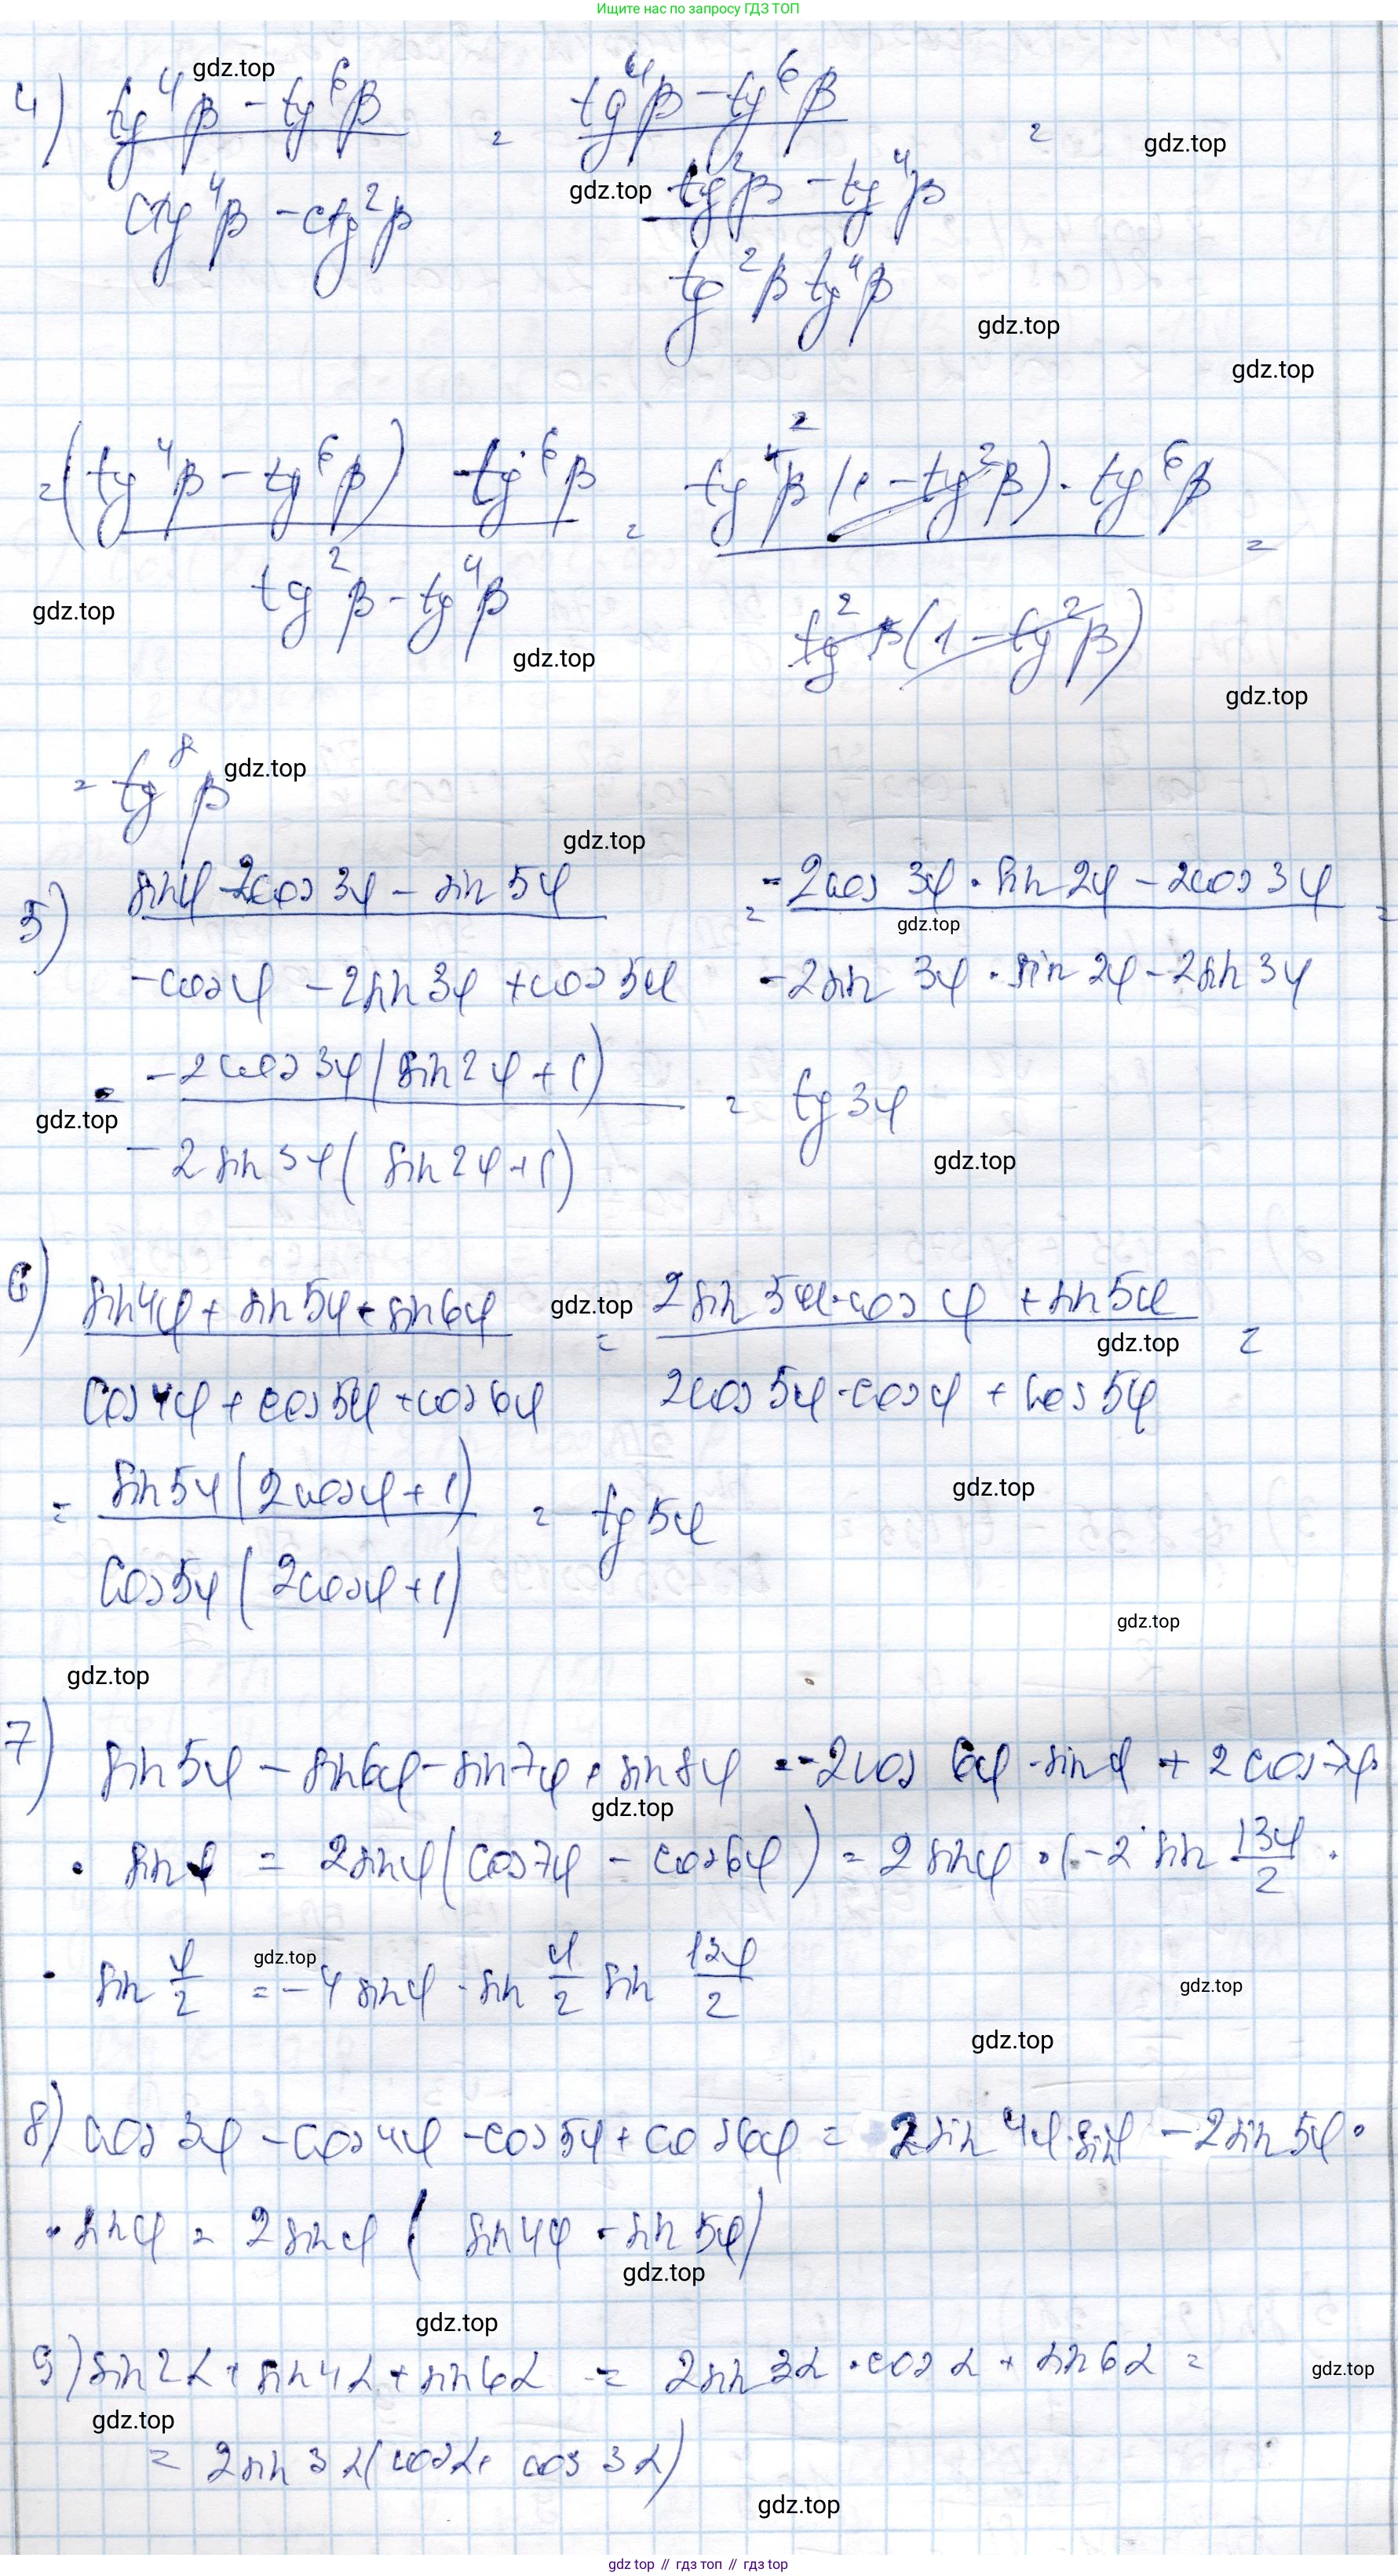 Ищите нас по запросу ГДЗ ТОП
gdz.top
4) (tg⁴β - tg⁶β)/(ctg⁴β - ctg²β) = (tg⁴β - tg⁶β)/((tg²β - tg⁴β)/(tg²β tg⁴β)) =
gdz.top
gdz.top
gdz.top
gdz.top
= (tg⁴β - tg⁶β) · tg⁶β/(tg²β - tg⁴β) = tg⁴β² (1 - tg²β) · tg⁶β/(tg²β (1 - tg²β)) =
gdz.top
gdz.top
gdz.top
= tg⁸β
gdz.top
gdz.top
5) (sinφ - 2cos 3φ - sin 5φ)/(-cosφ - 2sin 3φ + cos 5φ) = (-2cos 3φ · sin 2φ - 2cos 3φ)/(-2sin 3φ · sin 2φ - 2sin 3φ) =
gdz.top
= -2cos 3φ (sin 2φ + 1)/(-2 sin 3φ (sin 2φ + 1)) = tg 3φ
gdz.top
gdz.top
6) (sin 4φ + sin 5φ + sin 6φ)/(cos 4φ + cos 5φ + cos 6φ) = (2sin 5φ · cos φ + sin 5φ)/(2cos 5φ · cos φ + cos 5φ) =
gdz.top
gdz.top
= sin 5φ (2cosφ + 1)/(cos 5φ (2cosφ + 1)) = tg 5φ
gdz.top
gdz.top
gdz.top
7) sin 5φ - sin 6φ - sin 7φ + sin 8φ = -2cos 6φ · sin φ + 2 cos 7φ ·
gdz.top
· sin φ = 2sinφ (cos 7φ - cos 6φ) = 2 sinφ · (-2 sin 13φ/2 ·
· sin φ/2 = -4 sinφ · sin φ/2 sin 13φ/2
gdz.top
gdz.top
gdz.top
8) cos 3φ - cos 4φ - cos 5φ + cos 6φ = 2sin 4φ · sinφ - 2sin 5φ ·
· sinφ = 2sinφ (sin 4φ - sin 5φ)
gdz.top
gdz.top
9) sin 2α + sin 4α + sin 6α = 2sin 3α · cos α + sin 6α =
gdz.top
gdz.top
= 2sin 3α (cosα + cos 3α)
gdz.top
gdz.top // гдз топ // гдз top